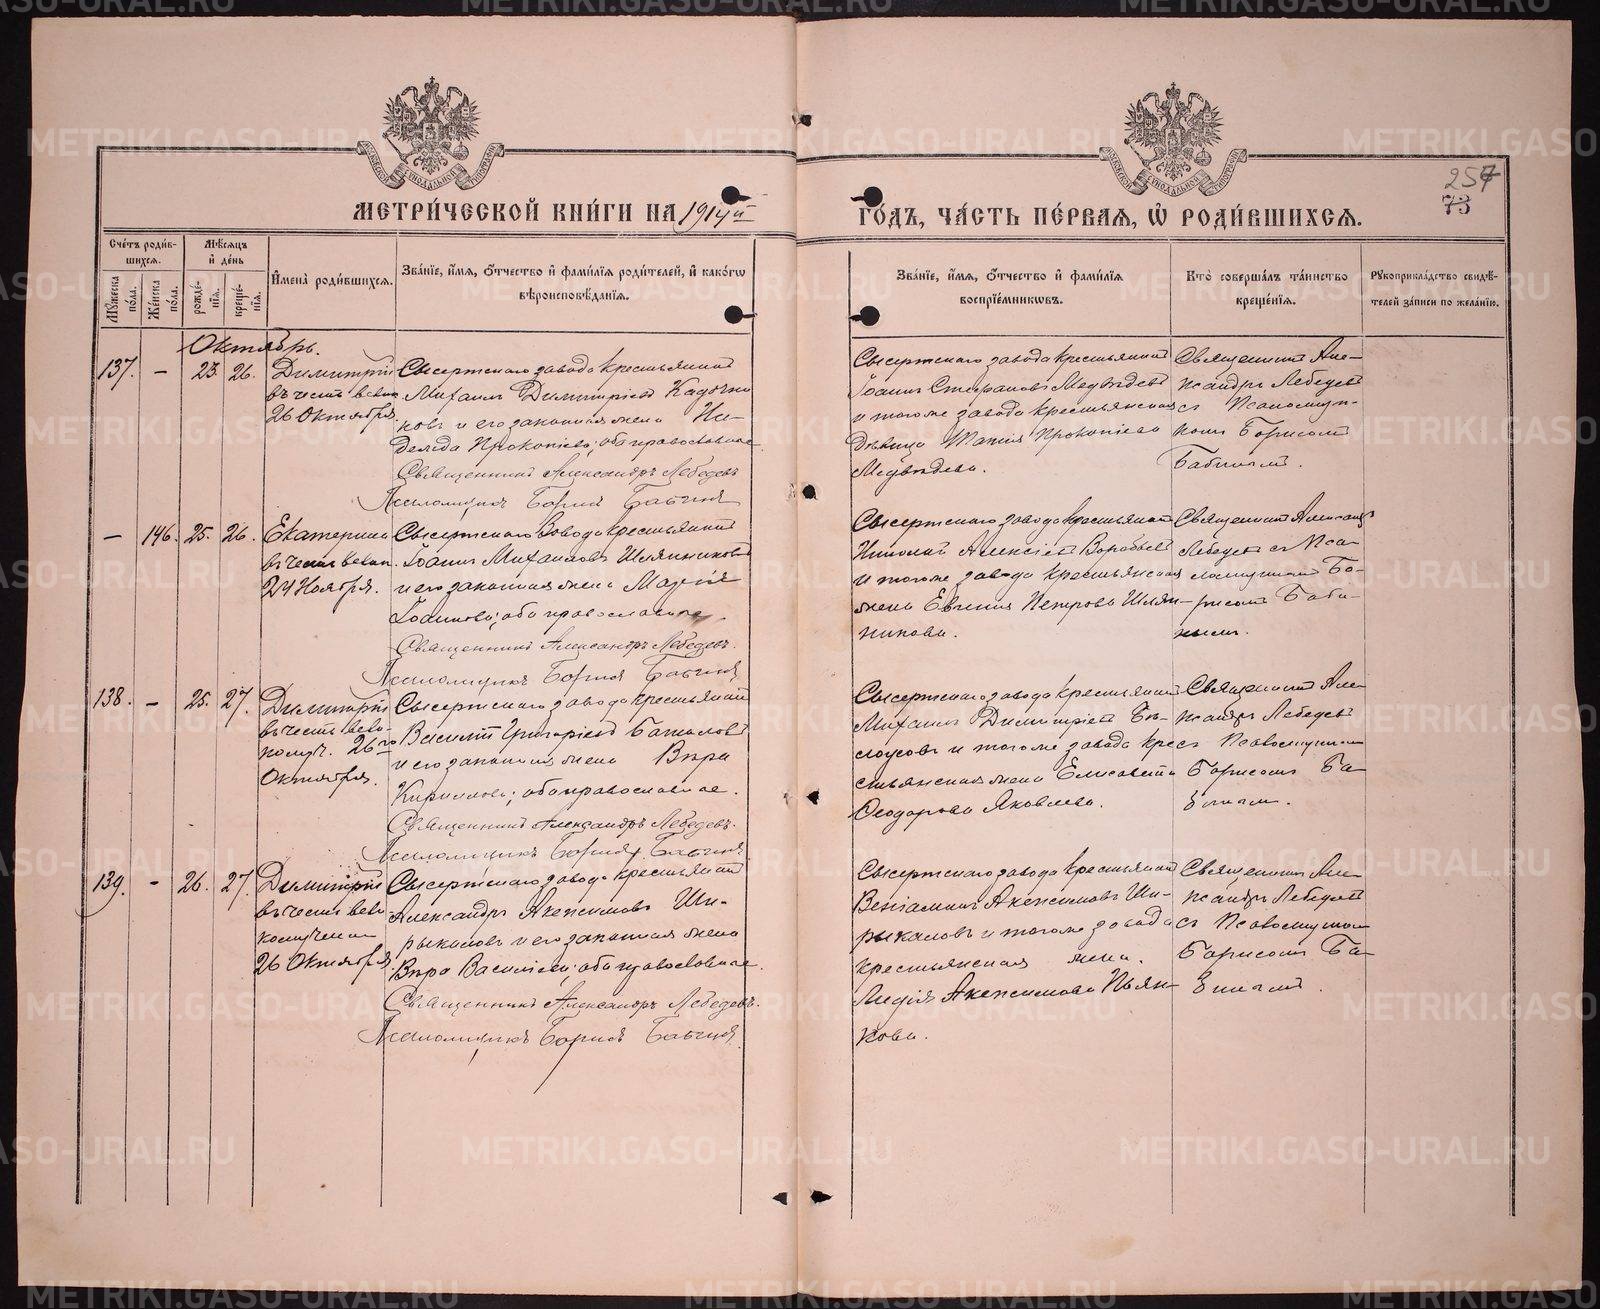 МЕТРИ́ЧЕСКОЙ КНИ́ГИ НА 1914й ГО́ДЪ, ЧА́СТЬ ПЕ́РВАЯ, Ѿ РОДИ́ВШИХСЯ.
257
73
Сче́тъ роди́в-
шихся.
Мѣ́сяцъ
и де́нь
Му́жеска по́ла.
Же́нска по́ла.
рожде́-
нїя.
креще́-
нїя.
Имена̀ роди́вшихся.
Зва́нїе, и́мя, о́тчество и фами́лїя роди́телей, и како́гѡ
вѣроисповѣ́данїя.
Зва́нїе, и́мя, о́тчество и фами́лїя
воспрїе́мникѡвъ.
Кто̀ соверша́лъ та́инство
креще́нїя.
Рꙋкоприкла́дство свидѣ́-
телей за́писи по жела́нїю.
Октябрь.
137. – 23. 26.
Димитрій
въ честь велик
26 Октября.
Сысертскаго завода крестьянинъ
Михаилъ Димитріевъ Кадочни
ковъ и его законная жена На-
дежда Прокопіева; оба православные
Священникъ Александръ Лебедевъ
Псаломщикъ Борисъ Бабинъ
Сысертскаго завода крестьянинъ
Іоаннъ Стефановъ Медвѣдевъ
и тогоже завода крестьянская
дѣвица Таисія Прокопіева
Медвѣдева.
Священникъ Але-
ксандръ Лебедевъ
съ Псаломщи-
комъ Борисомъ
Бабинымъ.
– 146. 25. 26.
Екатерина
въ честь велик.
24 Ноября.
Сысертскаго Завода крестьянинъ
Іоаннъ Михаиловъ Шляпниковъ
и его законная жена Марія
Іоаннова; оба православные
Священникъ Александръ Лебедевъ.
Псаломщикъ Борисъ Бабинъ
Сысертскаго завода крестьянинъ
Николай Алексіевъ Воробьевъ
и тогоже завода крестьянская
жена Евгенія Петрова Шляп-
никова.
Священникъ Александръ
Лебедевъ съ Пса-
ломщикомъ Бо-
рисомъ Баби-
нымъ.
138. – 25. 27.
Димитрій
въ честь вели-
комуч. 26го
Октября.
Сысертскаго завода крестьянинъ
Василій Григоріевъ Баталовъ
и его законная жена Вѣра
Кириллова; оба православные.
Священникъ Александръ Лебедевъ.
Псаломщикъ Борисъ Бабинъ.
Сысертскаго завода крестьянинъ
Михаилъ Димитріевъ Бѣ-
лоусовъ и тогоже завода кре-
стьянская жена Елисавета
Ѳеодорова Яковлева.
Священникъ Але-
ксандръ Лебедевъ
съ Псаломщикомъ
Борисомъ Ба-
бинымъ.
139. – 26. 27.
Димитрій
въ честь вели-
комученика
26 Октября.
Сысертскаго завода крестьянинъ
Александръ Акепсимовъ Ши-
рыкаловъ и его законная жена
Вѣра Василіева; оба православные.
Священникъ Александръ Лебедевъ.
Псаломщикъ Борисъ Бабинъ
Сысертскаго завода крестьянинъ
Веніаминъ Акепсимовъ Ши-
рыкаловъ и тогоже завода
крестьянская жена.
Лидія Акепсимова Пьян-
кова.
Священникъ Але-
ксандръ Лебедевъ
съ Псаломщикомъ
Борисомъ Ба-
бинымъ.
METRIKI.GASO-URAL.RU